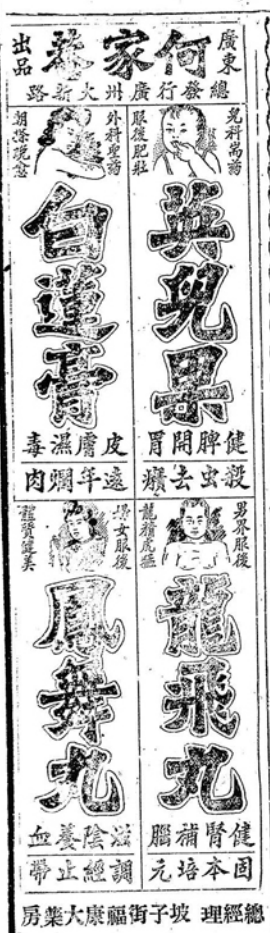 廣東
何家巷
出品
總發行廣州大新路
兒科嵩药
服後肥壯
英兒果
健脾開胃
殺虫去癪
外科聖药
朝搽晚愈
白蓮膏
皮膚濕毒
遠年爛肉
男界服後
龍精虎猛
龍飛丸
健腎補腦
固本培元
婦女服後
體質健美
鳳舞丸
滋陰養血
調經止帶
總經理 坡子街福康大藥房